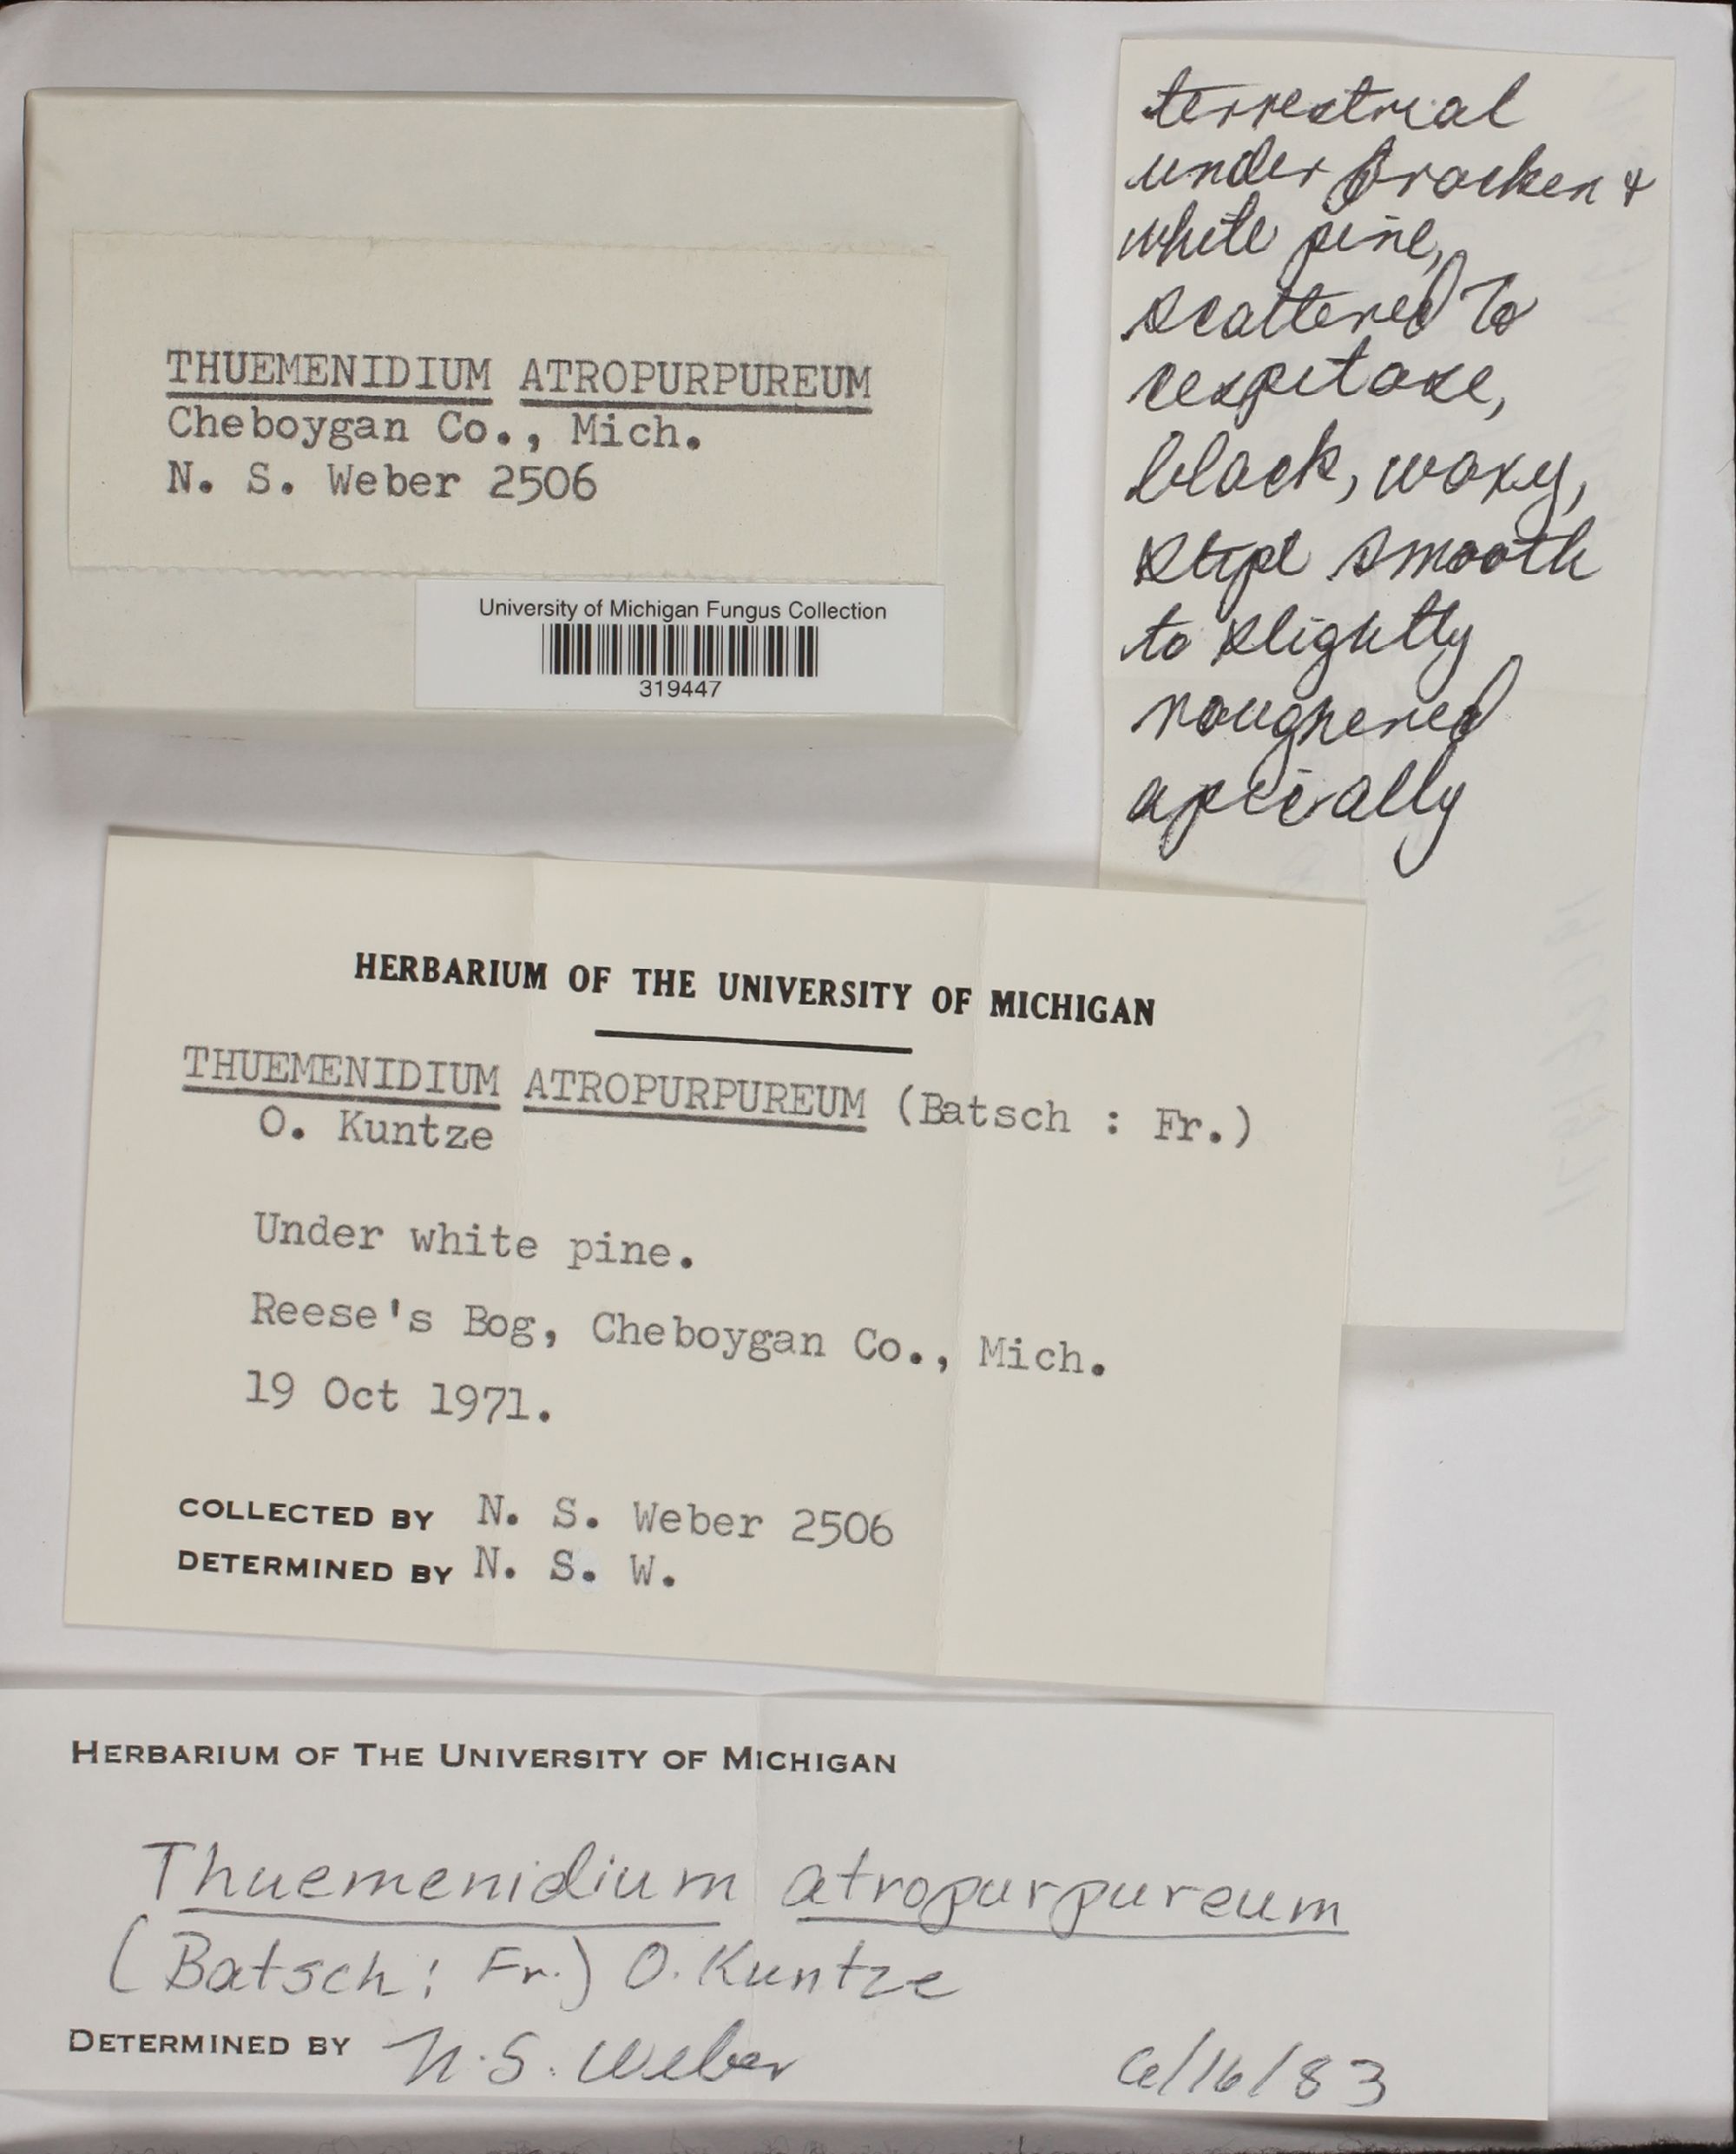 THUEMENIDIUM ATROPURPUREUM
Cheboygan Co., Mich.
N. S. Weber 2506
University of Michigan Fungus Collection
319447
terrestrial
under bracken &
white pine,
scattered to
cespitose,
black, waxy,
stipe smooth
to slightly
roughened
apically
HERBARIUM OF THE UNIVERSITY OF MICHIGAN
THUEMENIDIUM ATROPURPUREUM (Batsch : Fr.)
O. Kuntze
Under white pine.
Reese's Bog, Cheboygan Co., Mich.
19 Oct 1971.
COLLECTED BY N. S. Weber 2506
DETERMINED BY N. S. W.
HERBARIUM OF THE UNIVERSITY OF MICHIGAN
Thuemenidium atropurpureum
(Batsch: Fr.) O. Kuntze
DETERMINED BY N. S. Weber 6/16/83